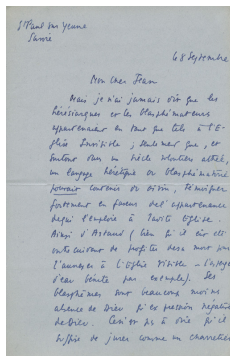 St Paul sur Yenne
Savoie
8 Septembre
Mon cher Jean
Mais je n'ai jamais dit que les
hérésiarques et les blasphémateurs
appartenaient en tant que tels à l'E-
glise Invisible ; seulement que, et
surtout dans un siècle volontiers athée,
un langage hérétique ou blasphématoire
pouvait contenir du divin, témoigner
fortement en faveur de l'appartenance
de qui l'emploie à l'autre Eglise.
Ainsi d'Artaud ( bien qu'il eût été
de profiter de sa mort pour
l'annexer à l'Eglise visible
d'eau bénite par exemple). Ses
blasphèmes sont beaucoup moins
absence de Dieu qu'expression négative
de Dieu. Ceci n'est pas à dire qu'il
suffise de jurer comme un charretier